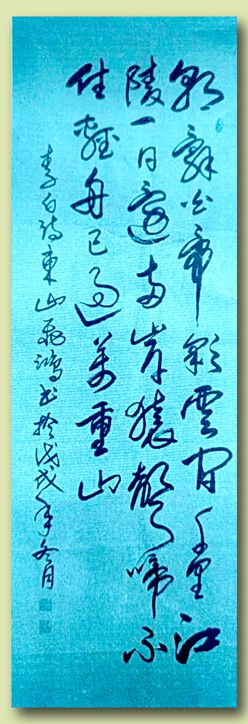 朝辭白帝彩雲間千里江
陵一日還兩岸猿聲啼不
住輕舟已過萬重山
李白詩東山飛鴻書於戊戌年冬月